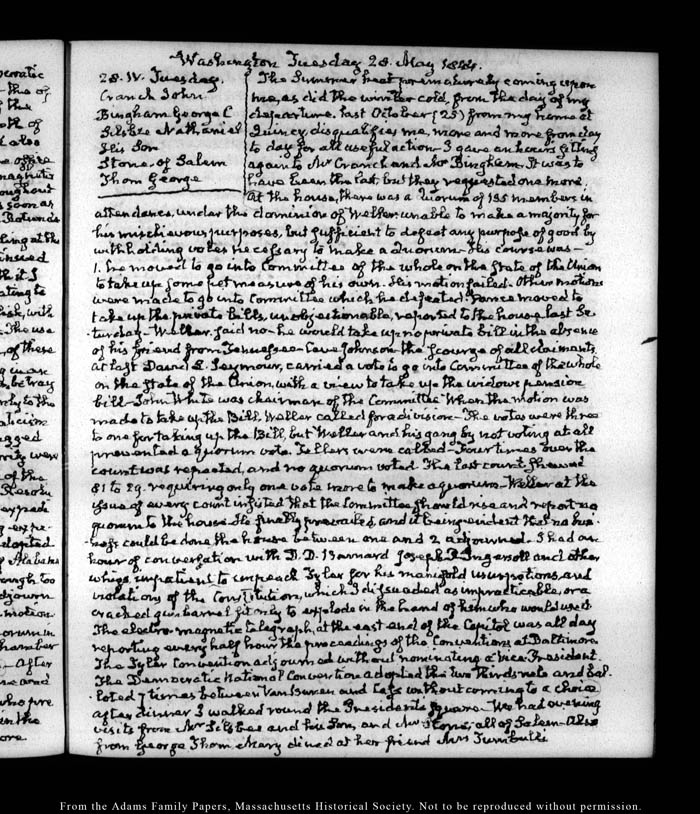 Washington Tuesday 28. May 1844.
28. IV. Tuesday.
Cranch John
Bingham George C
Silsbee Nathaniel
His Son
Stone, of Salem
Thom George
The Summer heat prematurely coming upon
me, as did the winter cold, from the day of my
departure, last October (25) from my home at
Quincy, disqualifies me, more and more from day
to day for all useful action. I gave an hour's sitting
again to Mr Cranch and Mr Bingham. It was to
have been the last, but they requested one more.
At the house, there was a Quorum of 135 members in
attendance, under the dominion of Weller unable to make a majority for
his mischievous purposes, but sufficient to defeat any purpose of good by
withholding votes necessary to make a quorum. His course was—
1. he moved to go into Committee of the whole on the State of the Union
to take up some pet measure of his own. His motion failed. Other motions
were made to go into Committee which he defeated. Vance moved to
take up the private bills, unobjectionable, reported to the house last Sa-
turday— Weller said no— he would take up no private bill in the absence
of his friend from Tennessee— Cave Johnson— the scourge of all claimants.
at last David L. Seymour, carried a vote to go into Committee of the whole
on the State of the Union, with a view to take up the widows pension
bill— John White was chairman of the Committee When the motion was
made to take up the Bill Weller called for a division— The votes were three
to one for taking up the Bill, but Weller and his gang by not voting at all
prevented a quorum vote. Tellers were called— Four times over the
count was repeated, and no quorum voted. The last count shewed
81 to 29. requiring only one vote more to make a quorum— Weller at the
issue of every count insisted that the Committee should rise and report no
quorum to the house. He finally prevailed, and it being evident that no busi-
ness could be done the house between one and 2 adjourned. I had an
hour of conversation with D. D. Barnard Joseph R Ingersoll and other
whigs impatient to impeach Tyler for his manifold usurpations, and
violations of the Constitution, which I dissuaded as impracticable, or a
cracked gun barrel fit only to explode in the hand of him who would use it.
The electro magnetic telegraph, at the east end of the Capitol was all day
reporting every half hour the proceedings of the Conventions at Baltimore.
The Tyler Convention adjourned without nominating a Vice-President
The Democratic National Convention adopted the two thirds rule and bal-
loted 7 times between Van Buren and Cass without coming to a choice
after dinner I walked round the President's square. We had evening
visits from Mr Silsbee and his Son, and Mr Stone, all of Salem— Also
from George Thom. Mary dined at her friend Mrs Turnbull's
From the Adams Family Papers, Massachusetts Historical Society. Not to be reproduced without permission.